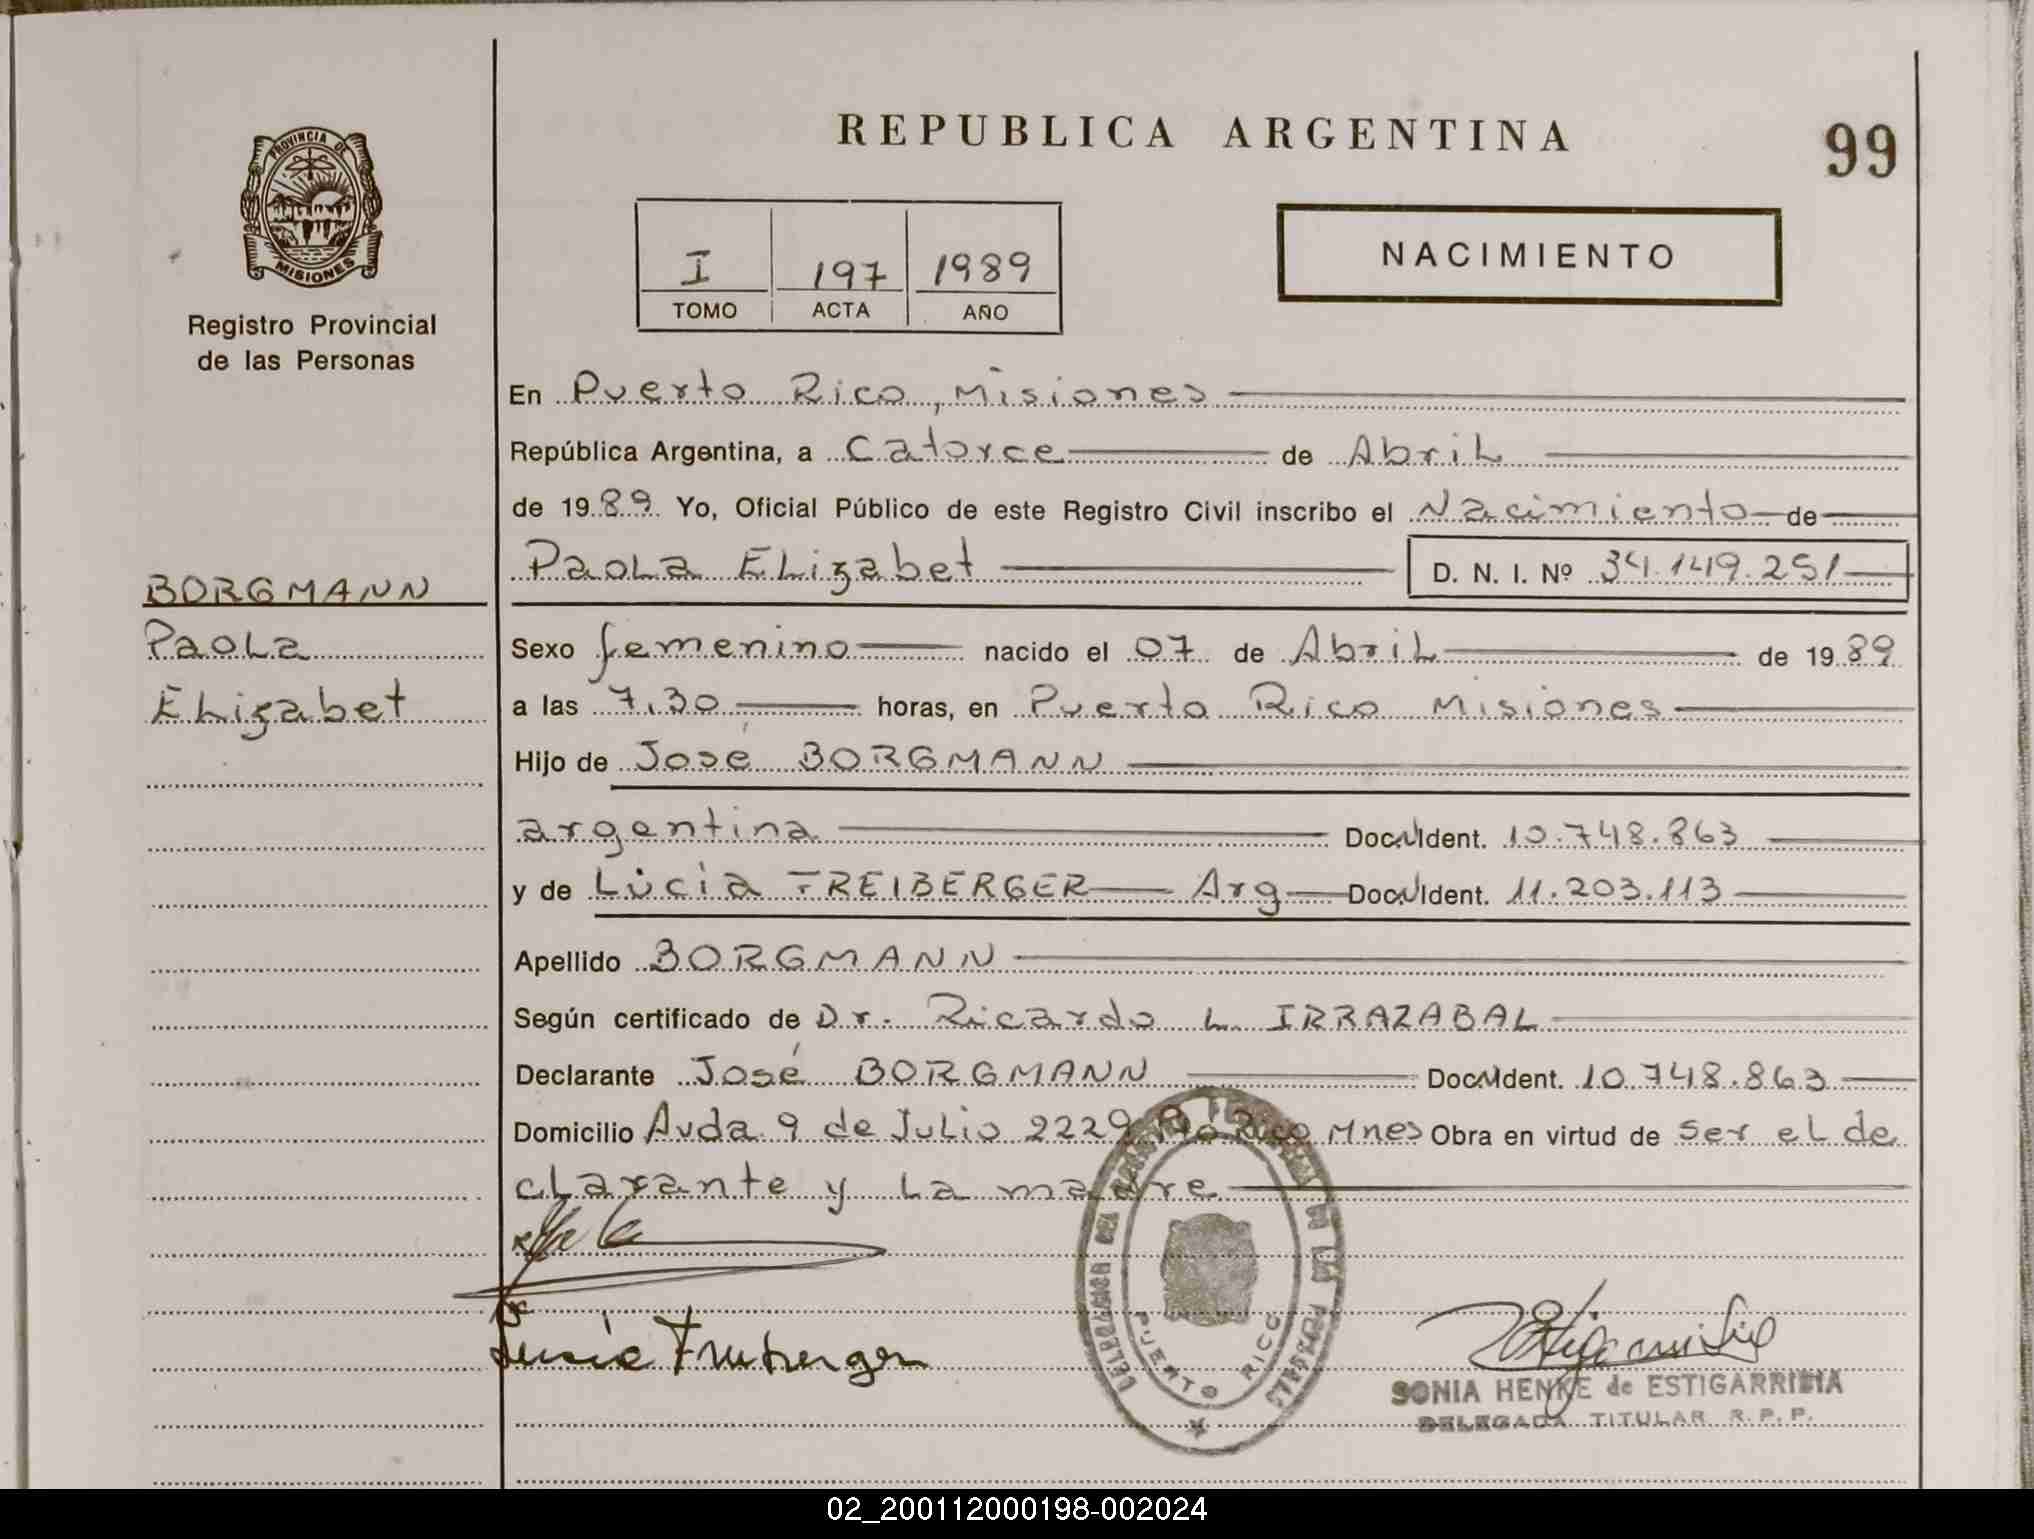 PROVINCIA DE
MISIONES
Registro Provincial
de las Personas
BORGMANN
Paola
Elizabet
REPUBLICA ARGENTINA
99
I 197 1989
TOMO ACTA AÑO
NACIMIENTO
En Puerto Rico, Misiones
República Argentina, a Catorce de Abril
de 1989 Yo, Oficial Público de este Registro Civil inscribo el Nacimiento de
Paola Elizabet D. N. I. Nº 34.149.251
Sexo femenino nacido el 07 de Abril de 1989
a las 7.30 horas, en Puerto Rico Misiones
Hijo de José BORGMANN
argentina Doc.N.Ident. 10.748.863
y de Lucía FREIBERGER Arg Doc.N.Ident. 11.203.113
Apellido BORGMANN
Según certificado de Dr. Ricardo L. IRRAZABAL
Declarante José BORGMANN Doc.N.Ident. 10.748.863
Domicilio Avda 9 de Julio 2229 Pto Rico Mnes Obra en virtud de ser el de
clarante y la madre
DELEGACION DEL REGISTRO PROVINCIAL DE LAS PERSONAS
PUERTO RICO
Lucía Freiberger
SONIA HENKE de ESTIGARRIBIA
DELEGADA TITULAR R. P. P.
02_200112000198-002024